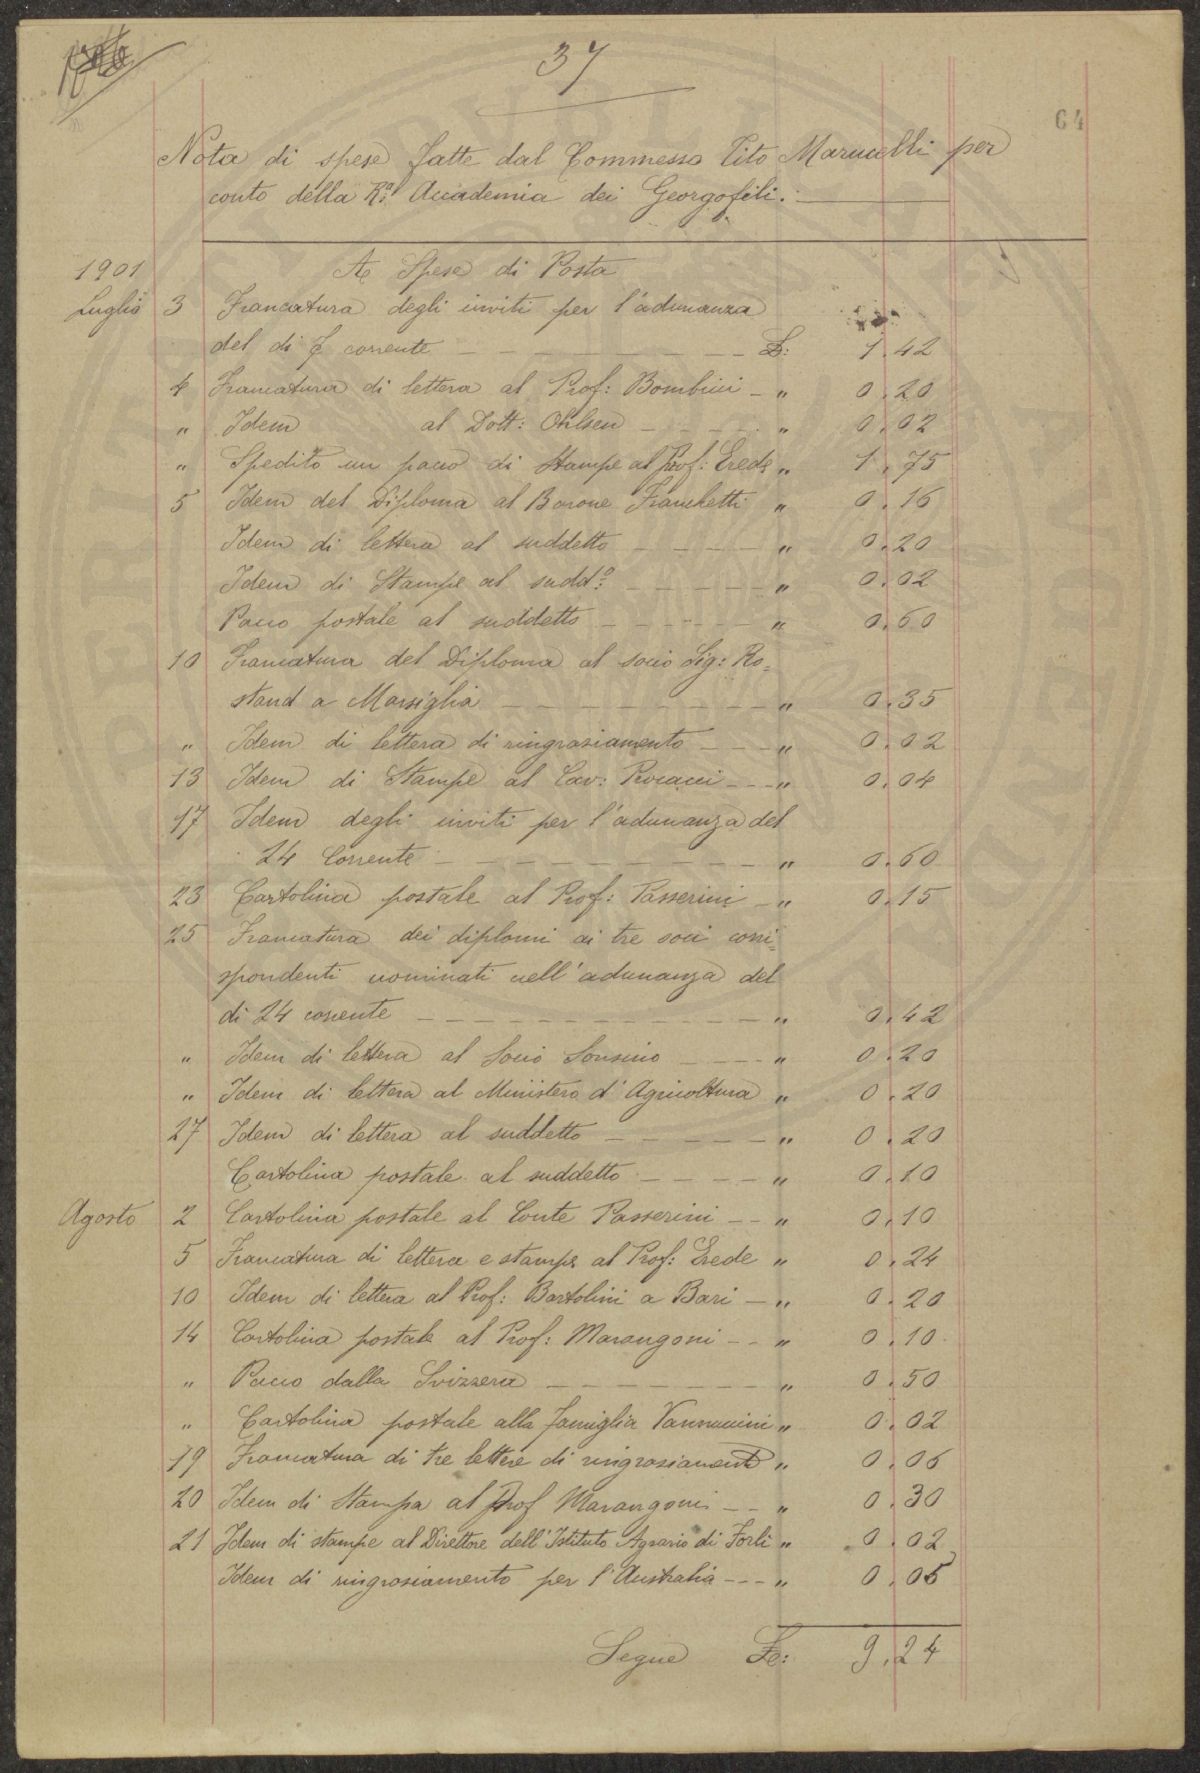 37
64
Nota di spese fatte dal Commesso Tito Marucelli per
conto della R.ª Accademia dei Georgofili.
1901 A Spese di Posta
Luglio 3 Francatura degli inviti per l'adunanza
del di 7 corrente £: 1.42
4 Francatura di lettera al Prof: Bombicci " 0.20
" Idem al Dott: Ohlsen " 0.02
" Spedito un pacco di Stampe al Prof: Erede " 1.75
5 Idem del Diploma al Barone Franchetti " 0.16
Idem di lettera al suddetto " 0.20
Idem di Stampe al sudd.º " 0.02
Pacco postale al suddetto " 0.60
10 Francatura del Diploma al socio Sig: Ro=
stand a Marsiglia " 0.35
" Idem di lettera di ringraziamento " 0.02
13 Idem di Stampe al Cav: " 0.04
17 Idem degli inviti per l'adunanza del
24 Corrente " 0.60
23 Cartolina postale al Prof: Passerini " 0.15
25 Francatura dei diplomi ai tre soci corri=
spondenti nominati nell'adunanza del
di 24 corrente " 0.42
" Idem di lettera al Socio Sonsino " 0.20
" Idem di lettera al Ministero d'Agricoltura " 0.20
27 Idem di lettera al suddetto " 0.20
Cartolina postale al suddetto " 0.10
Agosto 2 Cartolina postale al Conte Passerini " 0.10
5 Francatura di lettera e stampe al Prof: Erede " 0.24
10 Idem di lettera al Prof: Bartolini a Bari " 0.20
14 Cartolina postale al Prof: Marangoni " 0.10
" Pacco dalla Svizzera " 0.50
" Cartolina postale alla famiglia Vannuccini " 0.02
19 Francatura di tre lettere di ringraziamento " 0.06
20 Idem di Stampa al Prof Marangoni " 0.30
21 Idem di stampe al Direttore dell'Istituto Agrario di Forlì " 0.02
Idem di ringraziamento per l'Australia " 0.05
Segue £: 9.24